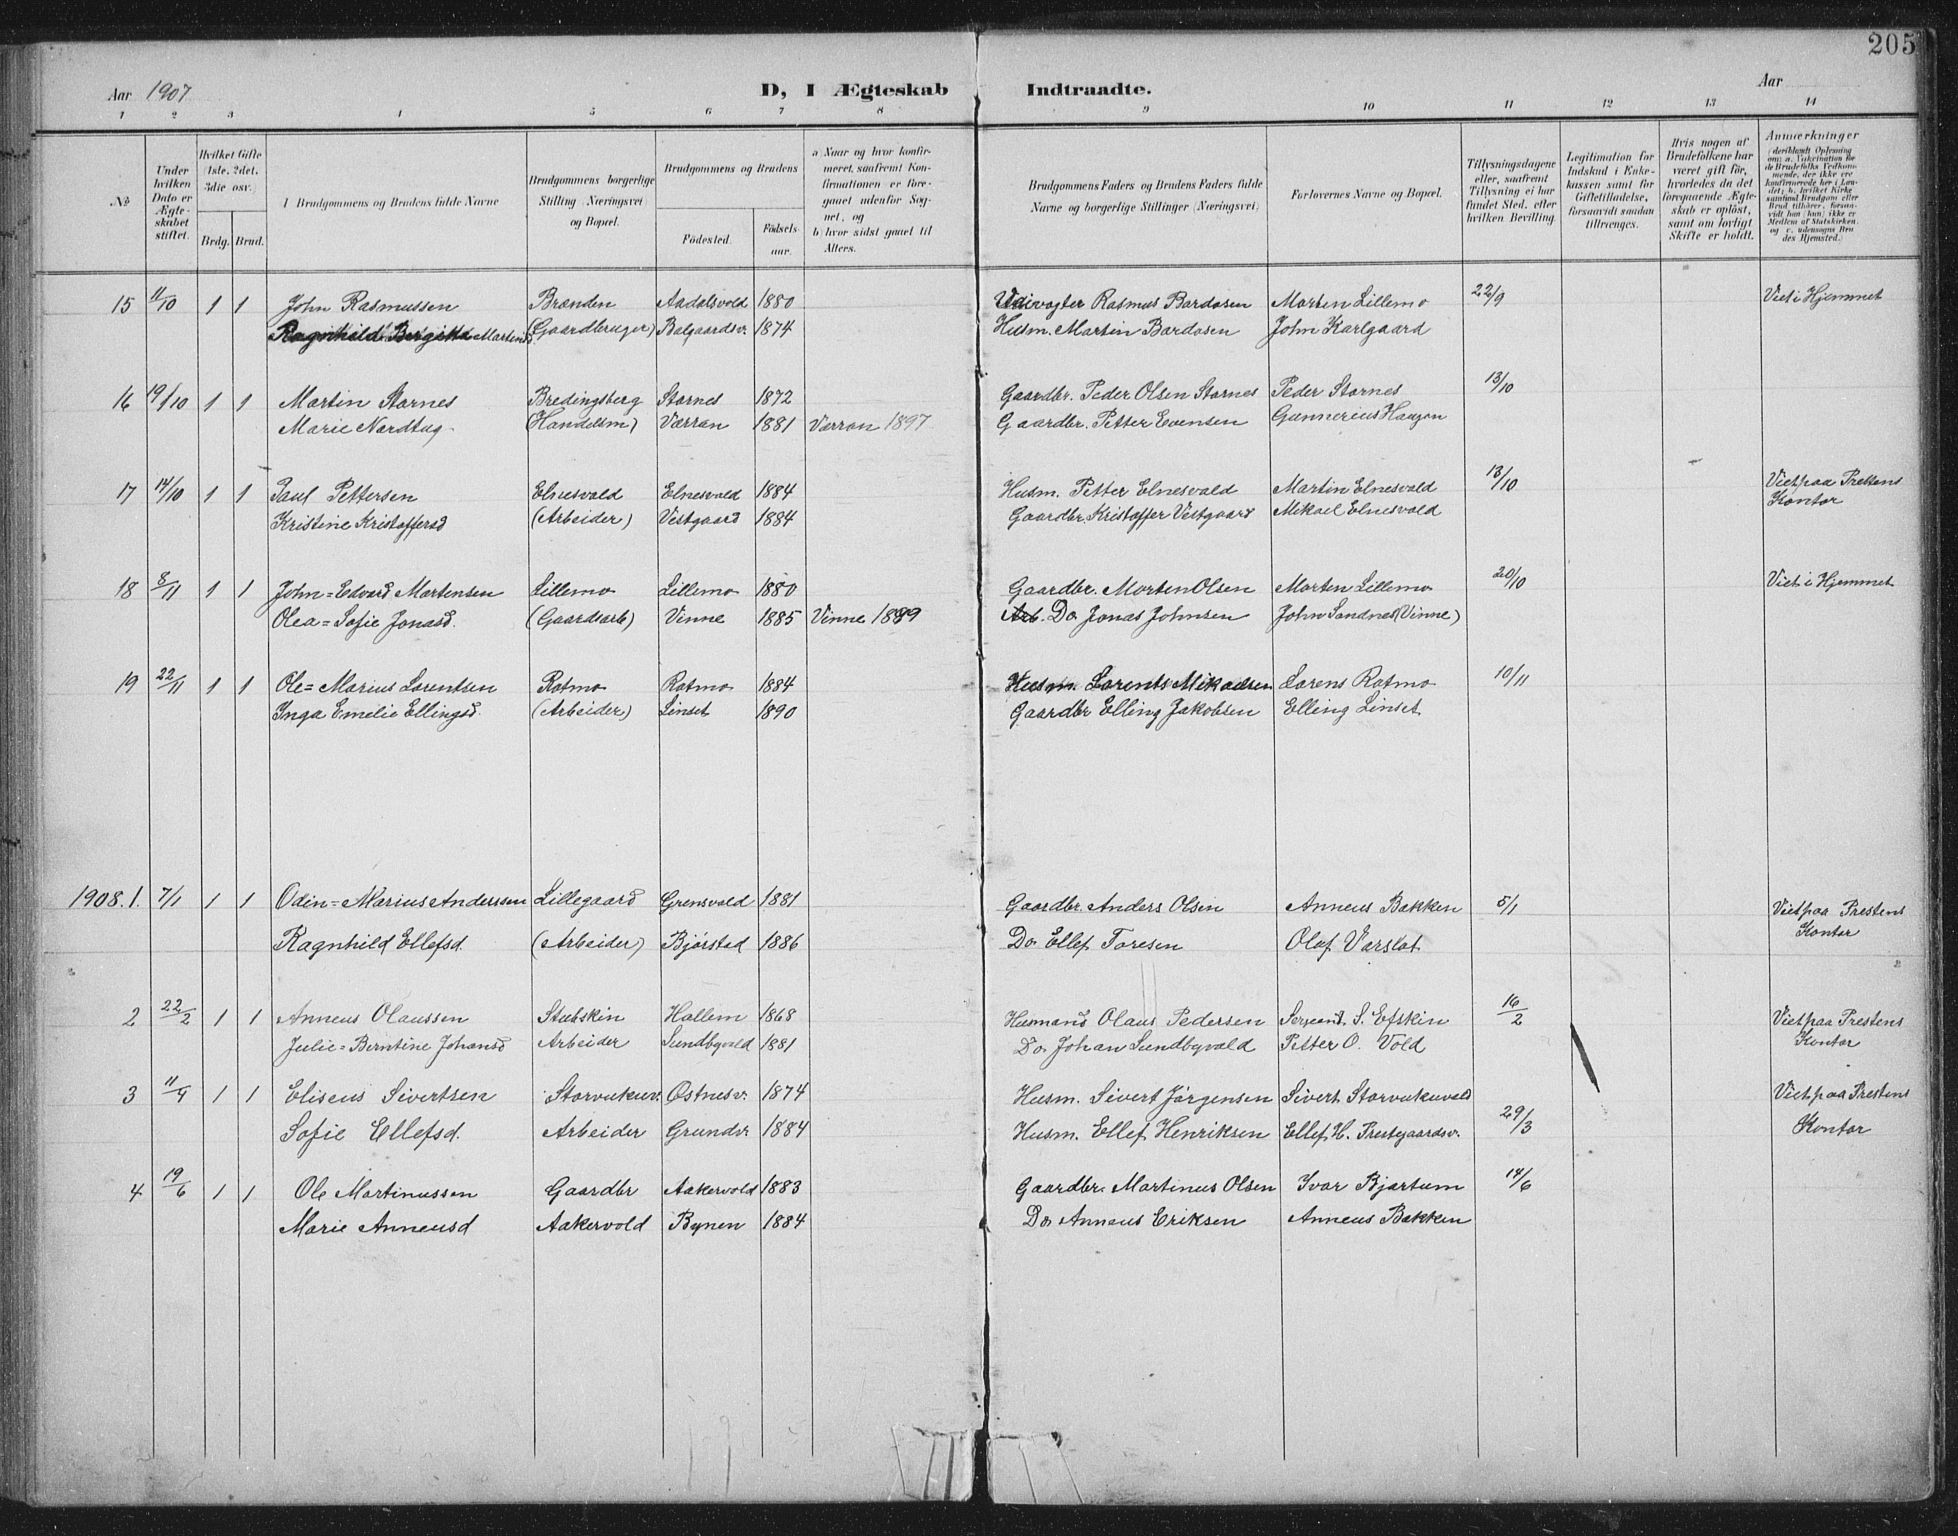 205
Aar 1907
D, I Ægteskab Indtraadte.
Aar
1 2 3 4 5 6 7 8 9 10 11 12 13 14
No.
Under hvilken Dato er Ægteskabet stiftet.
Hvilket Gifte (1ste, 2det, 3die osv.)
Brdg. Brud.
I Brudgommens og Brudens fulde Navne
Brudgommens borgerlige Stilling (Næringsvei) og Bopæl.
Brudgommens og Brudens
Födested. Födselsaar.
a) Naar og hvor konfirmeret, saafremt Konfirmationen er foregaaet udenfor Sognet, og
b) hvor sidst gaaet til Alters.
Brudgommens Faders og Brudens Faders fulde Navne og borgerlige Stillinger (Næringsvei).
Forlovernes Navne og Bopæl.
Tillysningsdagene eller, saafremt Tillysning ei har fundet Sted, efter hvilken Bevilling.
Legitimation for Indskud i Enkekassen samt for Giftetilladelse, forsaavidt saadan tiltrænges.
Hvis nogen af Brudefolkene har været gift før, hvorledes da det foregaaende Ægteskab er opløst, samt om lovligt Skifte er holdt.
Anmærkninger
15 11/10 1 1 John Rasmussen Brænden Aadalsvold 1880 Rasmus Bardosen Morten Lillemo 22/9 Viet i Hjemmet
Ragnhild Bergitta Martinsd. (Gaardbruger) Balgaardsv. 1874 Husm. Martin Bardosen John Karlgaard
16 19/10 1 1 Martin Stornes Bredingsberg Stornes 1872 Gaardbr. Peder Olsen Stornes Peder Stornes 13/10
Marie Nordtug (Handelsm) Værran 1881 Værran 1897 Gaardbr. Petter Evensen Gunnerius Haugan
17 14/10 1 1 Paul Pettersen Elnesvold Elnesvold 1884 Husm. Petter Elnesvold Martin Elnesvold 13/10 Viet paa Prestens
Kristine Kristoffersd (Arbeider) Vestgaard 1884 Gaardbr. Kristoffer Vestgaard Mikael Elnesvold Kontor
18 8/11 1 1 John=Edvard Mortensen Lillemo Lillemo 1880 Gaardbr. Morten Olsen Morten Lillemo 20/10 Viet i Hjemmet
Olea=Sofie Jonasd. (Gaardsarb) Vinne 1885 Vinne 1899 Arb. Do. Jonas Johnsen John Sandnes (Vinne)
19 22/11 1 1 Ole=Marius Lorentsen Rotmo Rotmo 1884 Husm. Lorents Mikaelsen Lorens Rotmo 10/11
Inga Emelie Ellingsd. (Arbeider) Linset 1890 Gaardbr Elling Jakobsen Elling Linset
1908. 1. 7/1 1 1 Odin=Marius Anderssen Lillegaard Grensvold 1881 Gaardbr. Anders Olsen Anneus Bakken 5/1 Viet paa Prestens
Ragnhild Ellefsd. (Arbeider) Bjørstad 1886 Do. Ellef Toresen Olaf Varslot Kontor
2 22/2 1 1 Anneus Olaussen Stubskin Hallem 1868 Husmand Olaus Pedersen Sersjeant. S. Efskin 16/2 Viet paa Prestens
Julie=Berntine Johansd Arbeider Sundbyvald 1881 Do. Johan Sundbyvald Petter O. Vold Kontor
3 11/4 1 1 Eliseus Sivertsen Storvukuv. Østnesv. 1874 Husm. Sivert Jørgensen Sivert Storvukuvald 29/3 Viet paa Prestens
Sofie Ellefsd. Arbeider Grundv. 1884 Husm. Ellef Henriksen Ellef H. Prestegaardsv. Kontor
4 19/6 1 1 Ole Martinussen Gaardbr Aakervold 1883 Gaardbr. Martinus Olsen Ivar Bjartum 14/6
Marie Anneusd Aakervold Bynen 1884 Do. Anneus Eriksen Anneus Bakken